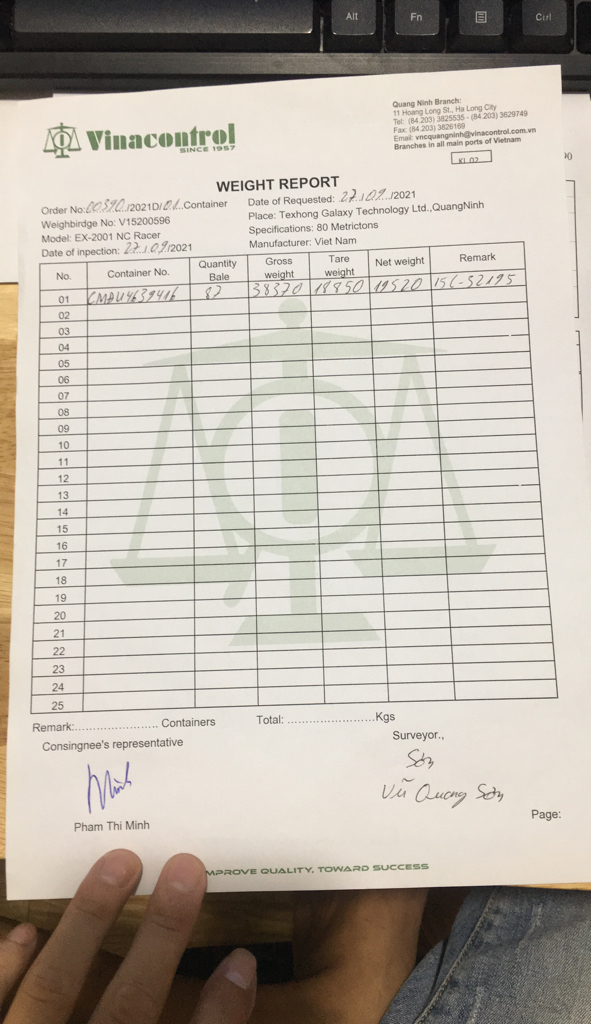 Alt
Fn
Ctrl
Vinacontrol
SINCE 1957
Quang Ninh Branch:
11 Hoang Long St., Ha Long City
Tel: (84.203) 3825535 - (84.203) 3629749
Fax: (84.203) 3826169
Email: vncquangninh@vinacontrol.com.vn
Branches in all main ports of Vietnam
KL 02
WEIGHT REPORT
Order No: 00390./2021D/01..Container
Date of Requested: 27./09../2021
Weighbirdge No: V15200596
Place: Texhong Galaxy Technology Ltd.,QuangNinh
Model: EX-2001 NC Racer
Specifications: 80 Metrictons
Date of inpection: 27./09/2021
Manufacturer: Viet Nam
No. Container No. Quantity Bale Gross weight Tare weight Net weight Remark
01 CMAU4639416 87 38370 18850 19520 15C-32195
02
03
04
05
06
07
08
09
10
11
12
13
14
15
16
17
18
19
20
21
22
23
24
25
Remark:......................... Containers Total: ..........................Kgs
Consingnee's representative
Surveyor.,
Minh
Sơn
Vũ Quang Sơn
Pham Thi Minh
Page:
IMPROVE QUALITY, TOWARD SUCCESS